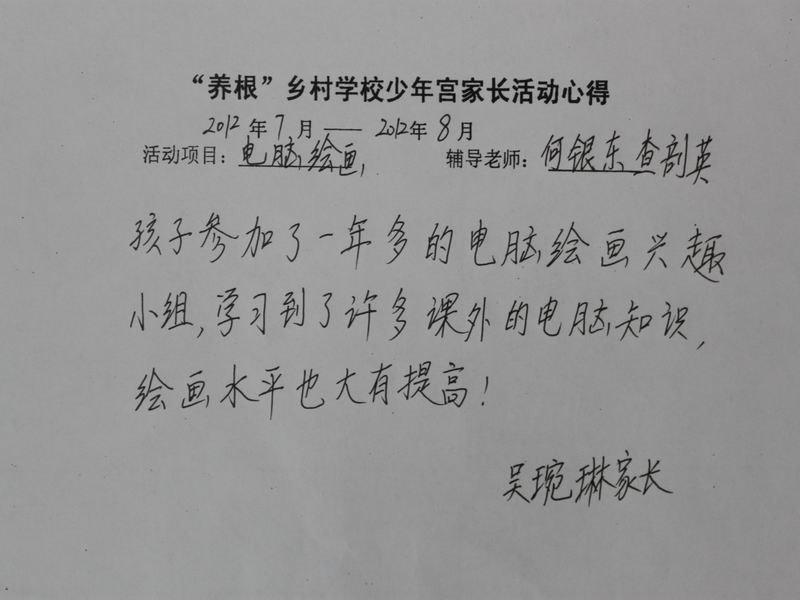 “养根”乡村学校少年宫家长活动心得
2012年7月——2012年8月
活动项目：电脑绘画 辅导老师：何银东 查剖英
孩子参加了一年多的电脑绘画兴趣
小组,学习到了许多课外的电脑知识,
绘画水平也大有提高!
吴琬琳家长